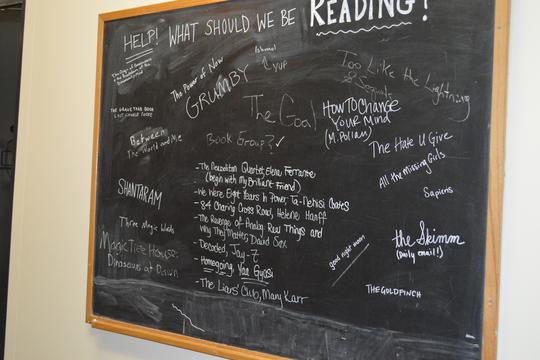 HELP! WHAT SHOULD WE BE READING?
Ishmael
yup
The Power of Now
GRUMBY
Too Like the Lightning
& Sequels
The Goal
HOW TO CHANGE
YOUR MIND
(M. Pollan)
Between
The World and Me
Book Group? ✓
The Hate U Give
All the Missing Girls
Sapiens
- The Neapolitan Quartet, Elena Ferrante
(begin with My Brilliant Friend)
- We Were Eight Years in Power Ta-Nehisi Coates
- 84 Charing Cross Road, Helene Hanff
- The Revenge of Analog Real Things and
Why They Matter, David Sax
- Decoded, Jay-Z
- Homegoing, Yaa Gyasi
- The Liars' Club, Mary Karr
SHANTARAM
Three Magic Words
Magic Tree House:
Dinosaurs at Dawn
good night moon
the Skimm
(Daily email!)
THE GOLDFINCH